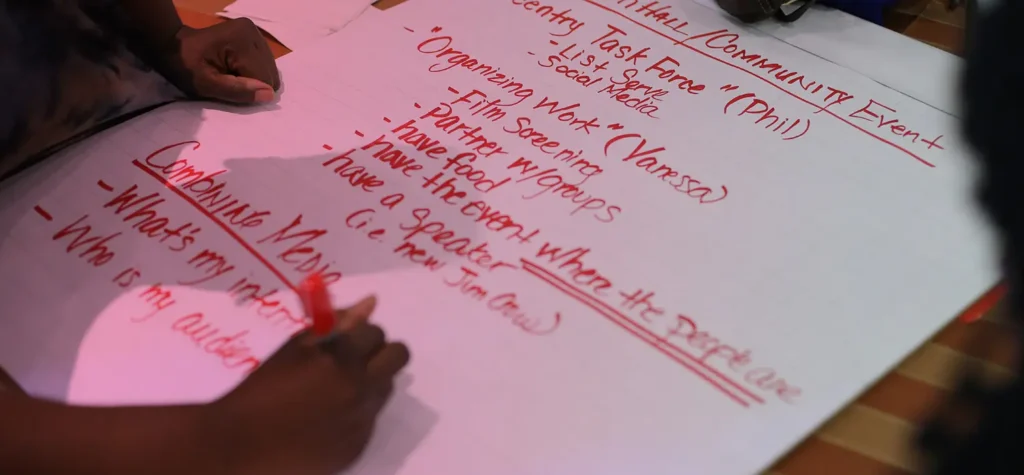 Hall/Community Event
entry Task Force" (Phil)
- List Serve
- Social Media
- "Organizing Work" (Vanessa)
- Film Screening
- Partner w/groups
- have food
- have the event where the people are
- have a speaker
(i.e. new Jim Crow)
Combining Media
- What's my intent
- Who is my audien